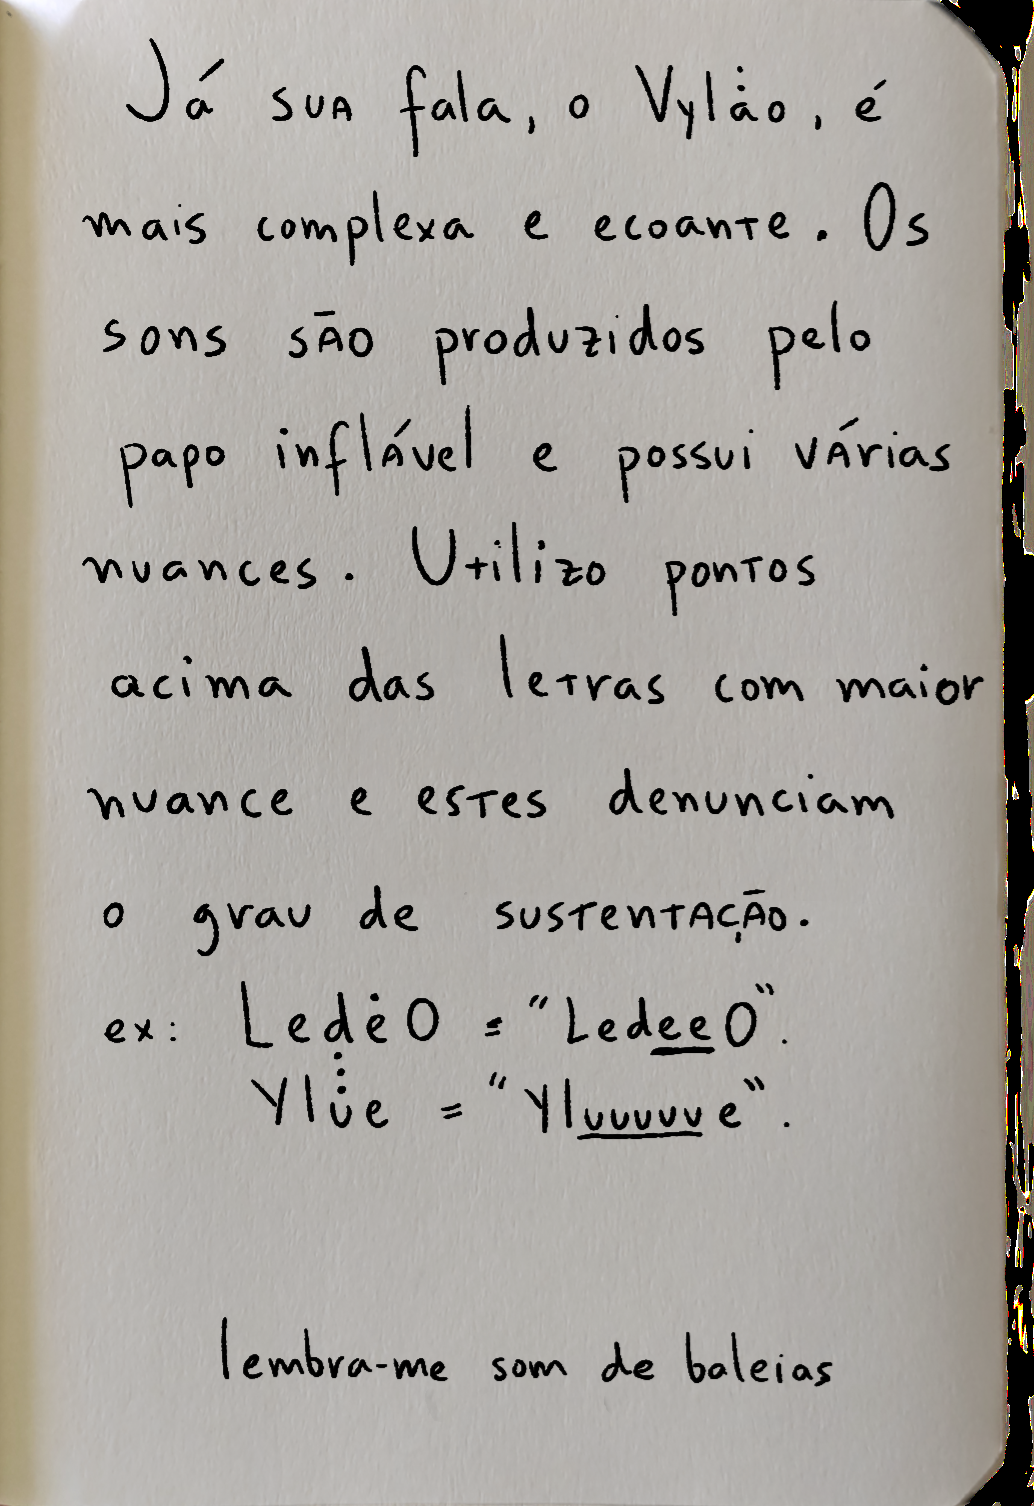 Já sua fala, o Vylȧo, é
mais complexa e ecoante. Os
sons são produzidos pelo
papo inflável e possui várias
nuances. Utilizo pontos
acima das letras com maior
nuance e estes denunciam
o grau de sustentação.
ex: LedėO = "LedeeO".
Ylu̇̇̇̇e = "Yluuuuue".
lembra-me som de baleias